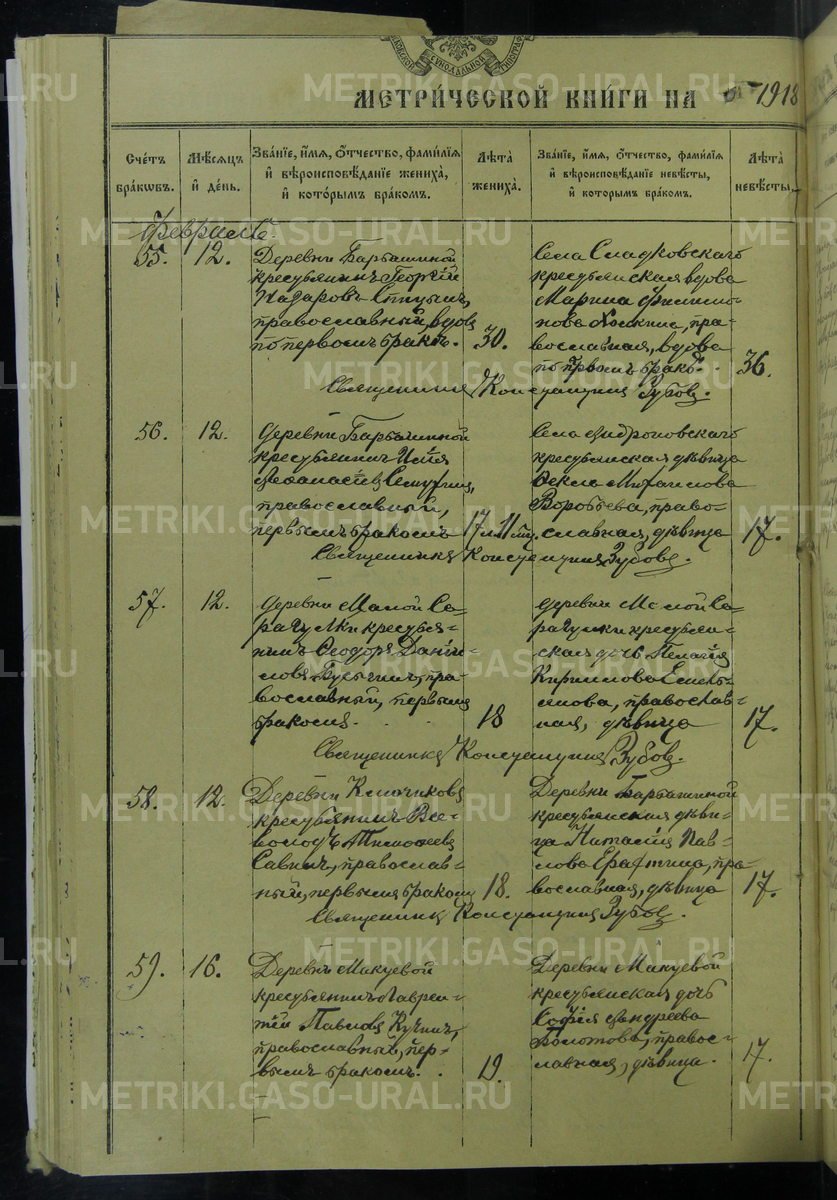 МЕТРИ́ЧЕСКОЙ КНИ́ГИ НА 1918
Сче́тъ бра́кωвъ.
Мѣ́сяцъ и҆ де́нь.
Зва́нїе, и҆́мѧ, ѻ҆́тчество, фами́лїѧ и҆ вѣроисповѣ́данїе жениха̀, и҆ кото́рымъ бра́комъ.
Лѣ́та жениха̀.
Зва́нїе, и҆́мѧ, ѻ҆́тчество, фами́лїѧ и҆ вѣроисповѣ́данїе невѣ́сты, и҆ кото́рымъ бра́комъ.
Лѣ́та невѣ́сты.
Февраль
55.
12.
Деревни Барбашиной
крестьянинъ Георгій
Назаровъ
православный, вдовъ
по первомъ бракѣ.
30.
Села Сладковскаго
крестьянская вдова
Марина Филимо-
нова пра-
вославная, вдова
по первомъ бракѣ.
36.
Священникъ Константинъ Зубовъ.
56.
12.
Деревни Барбашиной
крестьянинъ Илія
православный,
первымъ бракомъ
17 л. 11 мѣ.
Села Андроновскаго
крестьянская дѣвица
Ѳекла Митрофанова
Воробьева, право-
славная, дѣвица
17.
Священникъ Константинъ Зубовъ.
57.
12.
Деревни Малой Са-
рагулки крестья-
нинъ Ѳеодоръ Даніи-
ловъ пра-
вославный, первымъ
бракомъ.
18
Деревни Малой Са-
рагулки крестьян-
ская дочь Пелагія
Кириллова Емель-
янова, православ-
ная, дѣвица
17.
Священникъ Константинъ Зубовъ.
58.
12.
Деревни Ключиковъ
крестьянинъ Все-
володъ Тимоѳеевъ
Савинъ, православ-
ный, первымъ бракомъ
18.
Деревни Барбашиной
крестьянская дѣви-
ца Наталія Пав-
лова пра-
вославная, дѣвица
17.
Священникъ Константинъ Зубовъ.
59.
16.
Деревни Макуевой
крестьянинъ Лаврен-
тій Павловъ
православный, пер-
вымъ бракомъ.
19.
Деревни Макуевой
крестьянская дочь
Софія Андреева
Болотова, правос-
лавная, дѣвица.
17.
METRIKI.GASO-URAL.RU